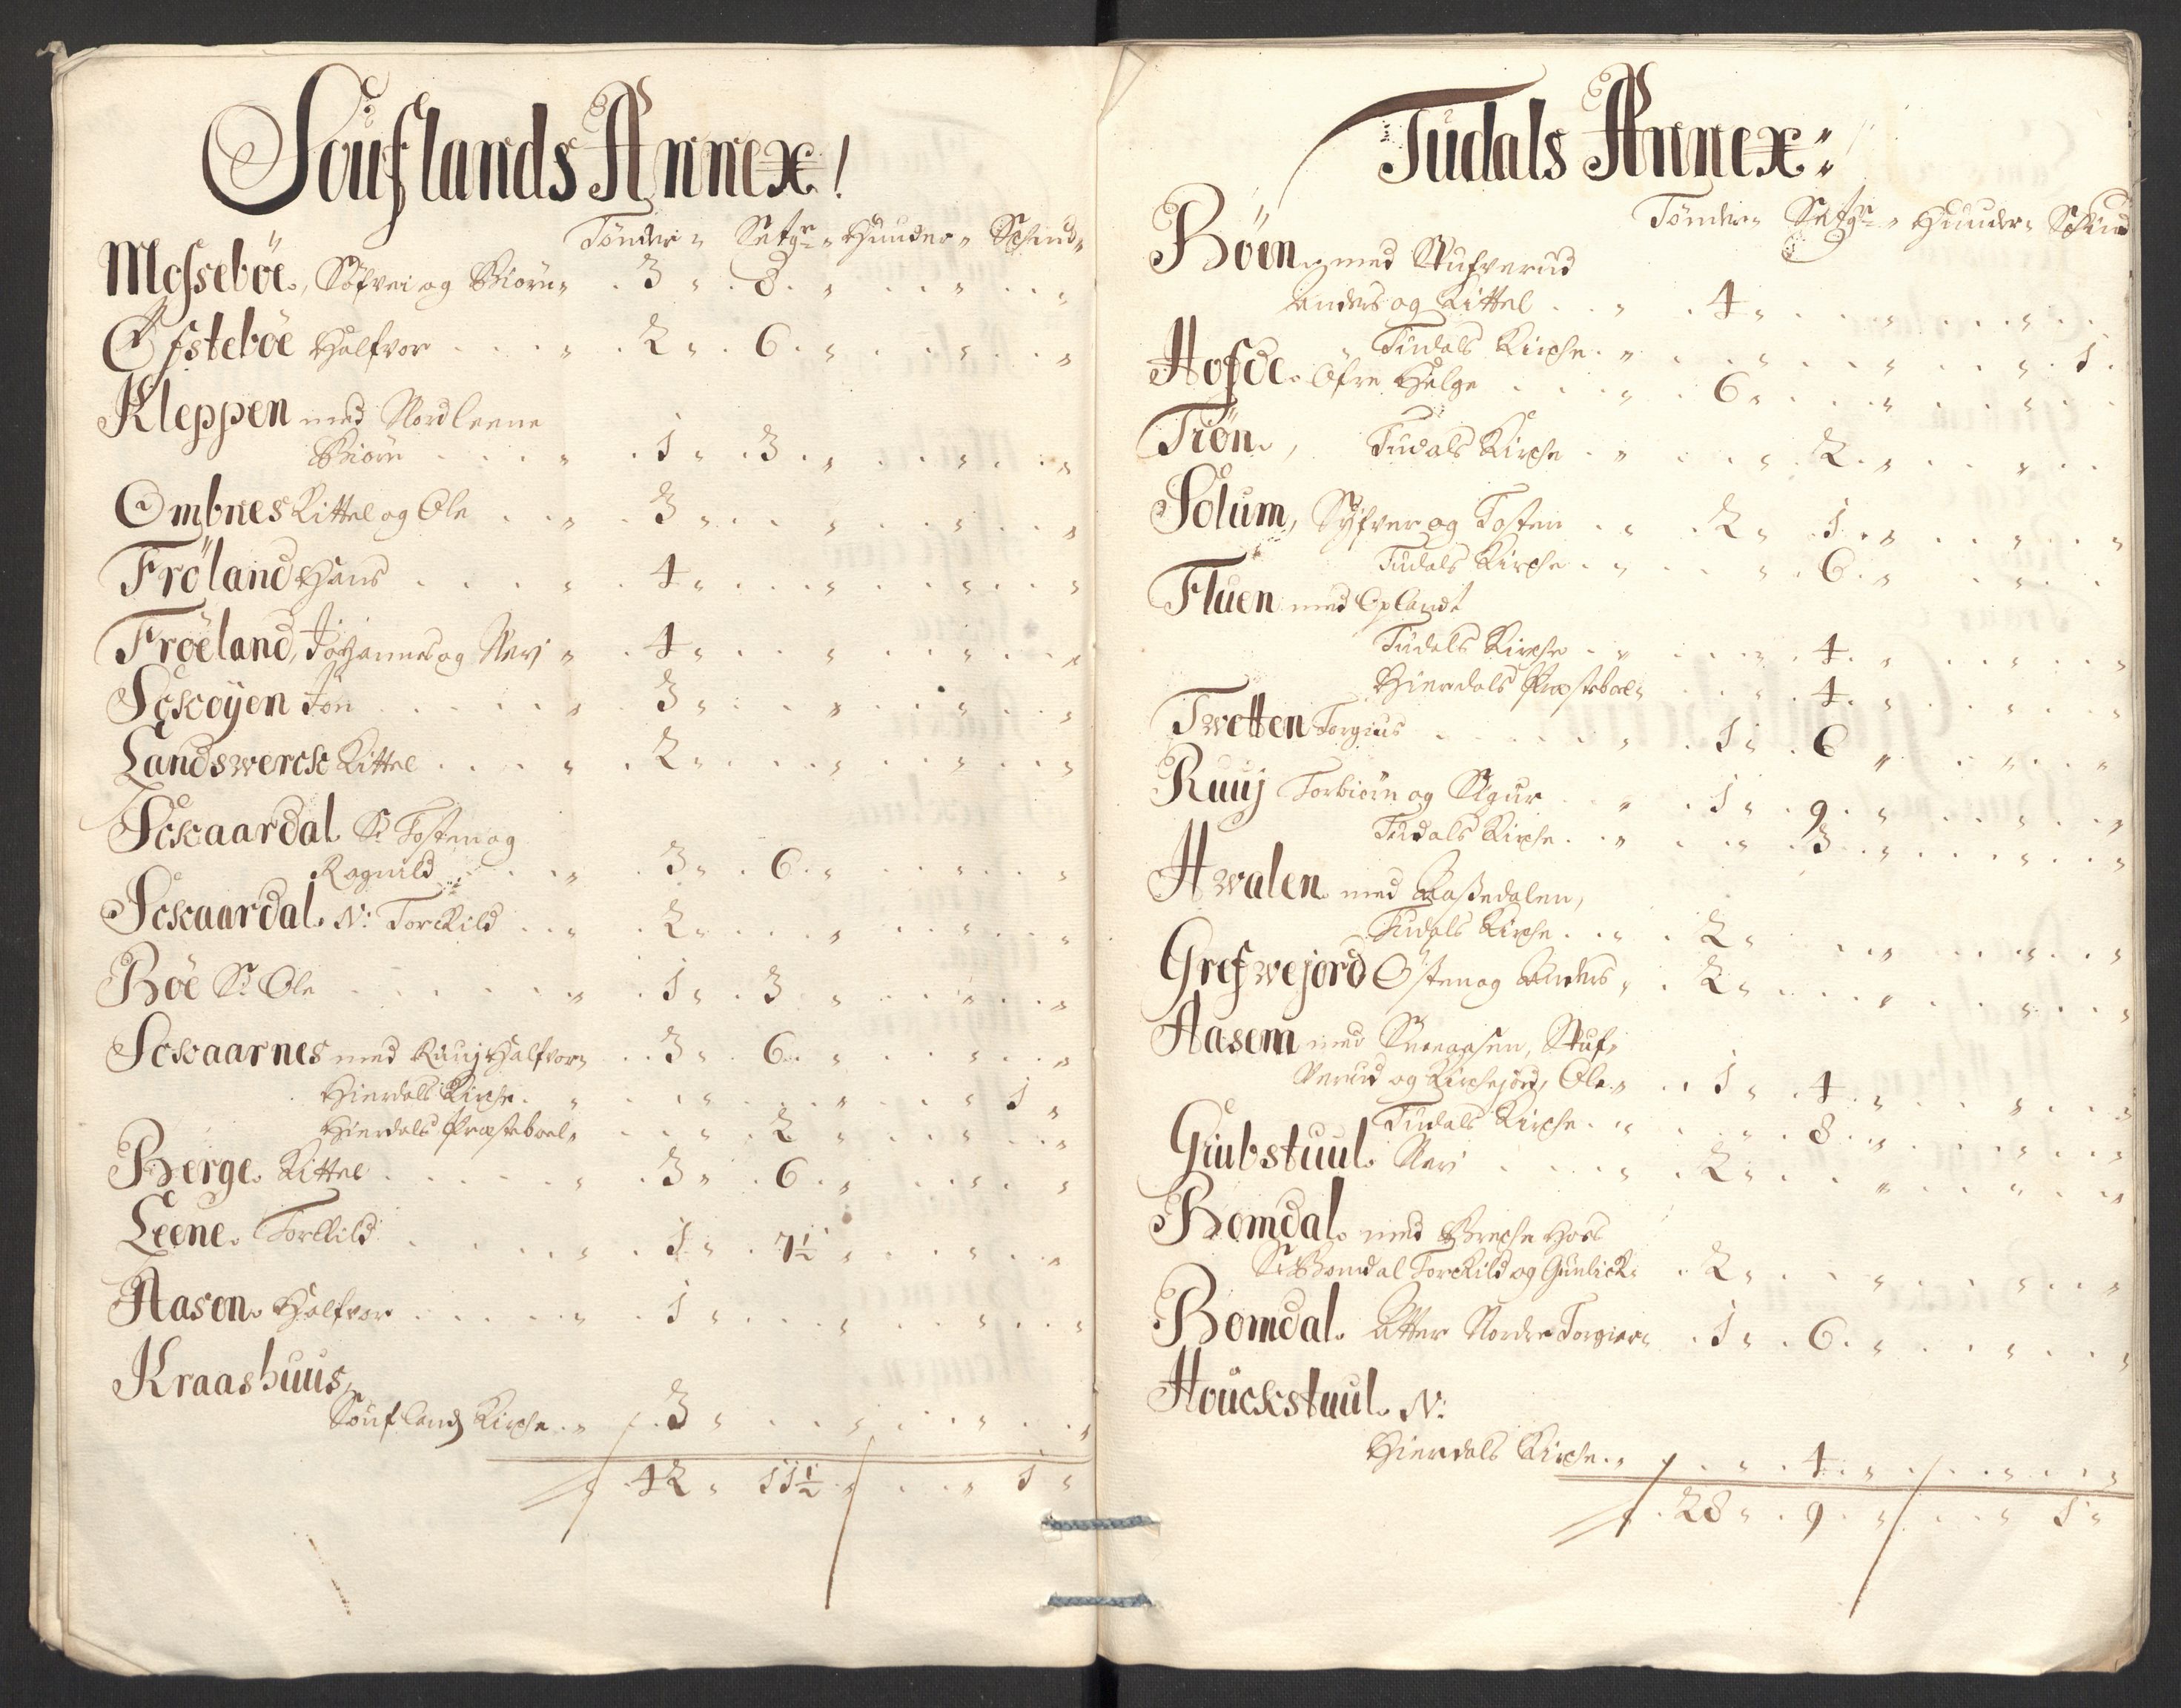 Souflands Annex!
Tønder„ Setgr„ Hunder„ Schind„
Mossebøe., Søfrei og Biørn„ . 3 „ . 8. „ . . . „ . . . „
Østebøe Halfvor . . . „ . 2 „ . 6. „ . . . „ . . . „
Kleppen med Nordleene
Biørn . . . „ . 1 „ . 3. „ . . . „ . . „
Ombnes Kittel og Ole . . „ . 3 „ . . . „ . . . „ . . . „
Frøland Hans . . . . „ . 4 „ . . . „ . . . „ . . . „
Frøeland, Johannes og Nerj „ . 4 „ . . . „ . . . „ . . . „
Sckoÿen Jon . . . . . „ . 3 „ . . . „ . . . „ . . . „
Landswerck Kittel . . . . „ . 2 „ . . . „ . . . „ . . . „
Sckaardal S: Tosten og
Rognild . . . „ . 3 „ . 6. „ . . . „ . . . „
Sckaardal. N: Torckild . . „ . 2 „ . . . „ . . . „ . . . „
Bøe S: Ole . . . . . „ . 1 „ . 3 „ . . . „ . . „
Sckaarnes med Ruuj Halfvor„ . . 3 „ . 6. „ . . . „ . . . „
Hierdals Kirche. „ . . . „ . . . „ . . . „ 1 „
Hierdals Præsteboel„ . . . „ . 2 „ . . . „ . . . „
Berge. Kittel . . . . . „ . 3 „ . 6. „ . . . „ . . „
Leene. Torkild . . . . . „ . 1 „ . 7½ „ . . . „ . . „
Aason. Halfvor . . . . . „ . 1 „ . . . „ . . . „ . . . „
Kraashuus,
Soufland Kirche . „ . 3 „ . . . „ . . . „ . . . „
„ . 42 „ 11½ „ . . . „ 1 „
Tudals Annex„
Tønder„ Setgr„ Hunder„ Schind
Bøen. med Stufverud
Anders og Kittel . . „ . 4 „ . . . „ . . . „ . . .
„ Tudals Kirche. „ . . . „ . . . „ . . . „ . 1 .
Hofde. Øfre Helge . . . „ . 6 „ . . . „ . . . „ . . .
Trøn., Tudals Kirche . „ . . . „ . 2. „ . . . „ . . .
Solum, Syfver og Tosten . . „ . 2 „ . 1. „ . . . „ . . . „
Tudals Kirche . „ . . . „ . 6. „ . . . „ . . .
Fluen med Oplandt
Tudals Kirche . „ . . . „ . 4. „ . . . „ . . . „
Hierdals Præsteboel„ . . . „ . 4. „ . . . „ . . . „
Twetten Torgius . . . . „ . 1 „ . 6 „ . . . „ . . „
Ruuj Torbiørn og Sigur . . „ . 1 „ . 9. „ . . . „ . . . „
Tudals Kirche. . „ . . . „ . 3. „ . . . „ . . . „
Hwalen. med Baßedalen,
Tudals Kirche. . „ . 2 „ . . . „ . . . „ . . . „
Grefwejord Østen og Anders „ . 2 „ . . . „ . . . „ . . . „
Aasem med Sneaasen, Stuf„
verud og Kirchejord, Ole. „ . . 1 „ . 4. „ . . . „ . . . „
Tudals Kirche. . „ . . . „ . 8. „ . . . „ . . . „
Grubstuul. Nerj . . . „ . 2 „ . . . „ . . . „ . . „
Bomdal. med Breche hos
S: Bomdal Torckild og Gunlick„ . 2 „ . . . „ . . . „ . . . „
Bomdal. Atter Nordre Torgier„ . 1 „ . 6. „ . . . „ . . . „
Houckstuul. N:
Hierdals Kirche. „ . . . „ . 4. „ . . . „ . . . „
„ . 28 „ . 9. „ . . . „ 1 „